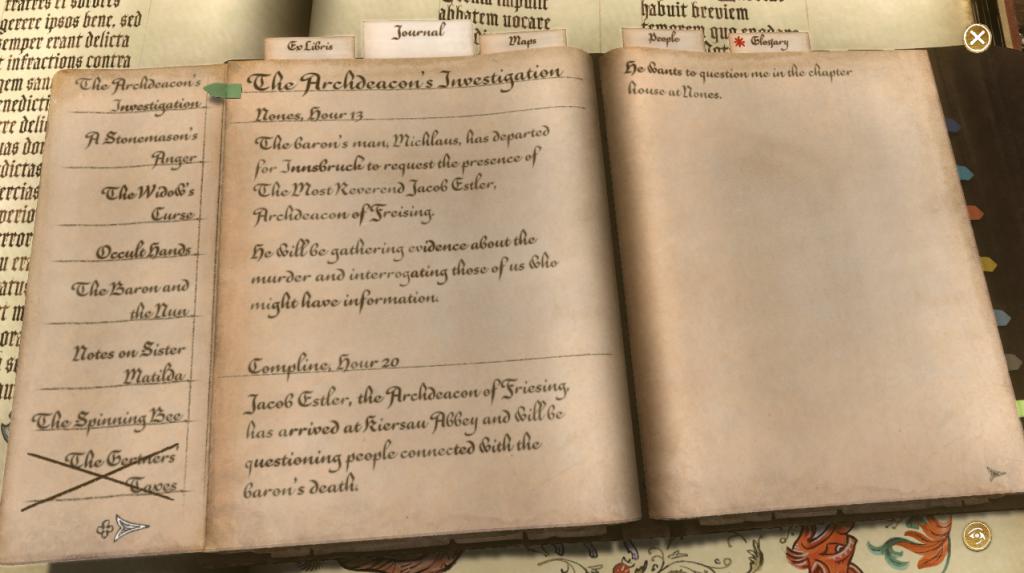 Ex Libris
Journal
Maps
People
Glossary
The Archdeacon's
Investigation
A Stonemason's
Anger
The Widow's
Curse
Occult Hands
The Baron and
the Nun
Notes on Sister
Matilda
The Spinning Bee
The Gertners
Taxes
The Archdeacon's Investigation
Nones, Hour 13
The baron's man, Micklaus, has departed
for Innsbruck to request the presence of
The Most Reverend Jacob Estler,
Archdeacon of Freising.
He will be gathering evidence about the
murder and interrogating those of us who
might have information.
Compline, Hour 20
Jacob Estler, the Archdeacon of Friesing
has arrived at Kiersau Abbey and will be
questioning people connected with the
baron's death.
He wants to question me in the chapter
house at Nones.
abbatem uocare
habuit breviem
gerere ipsos bene, sed
semper erant delicta
infractions contra